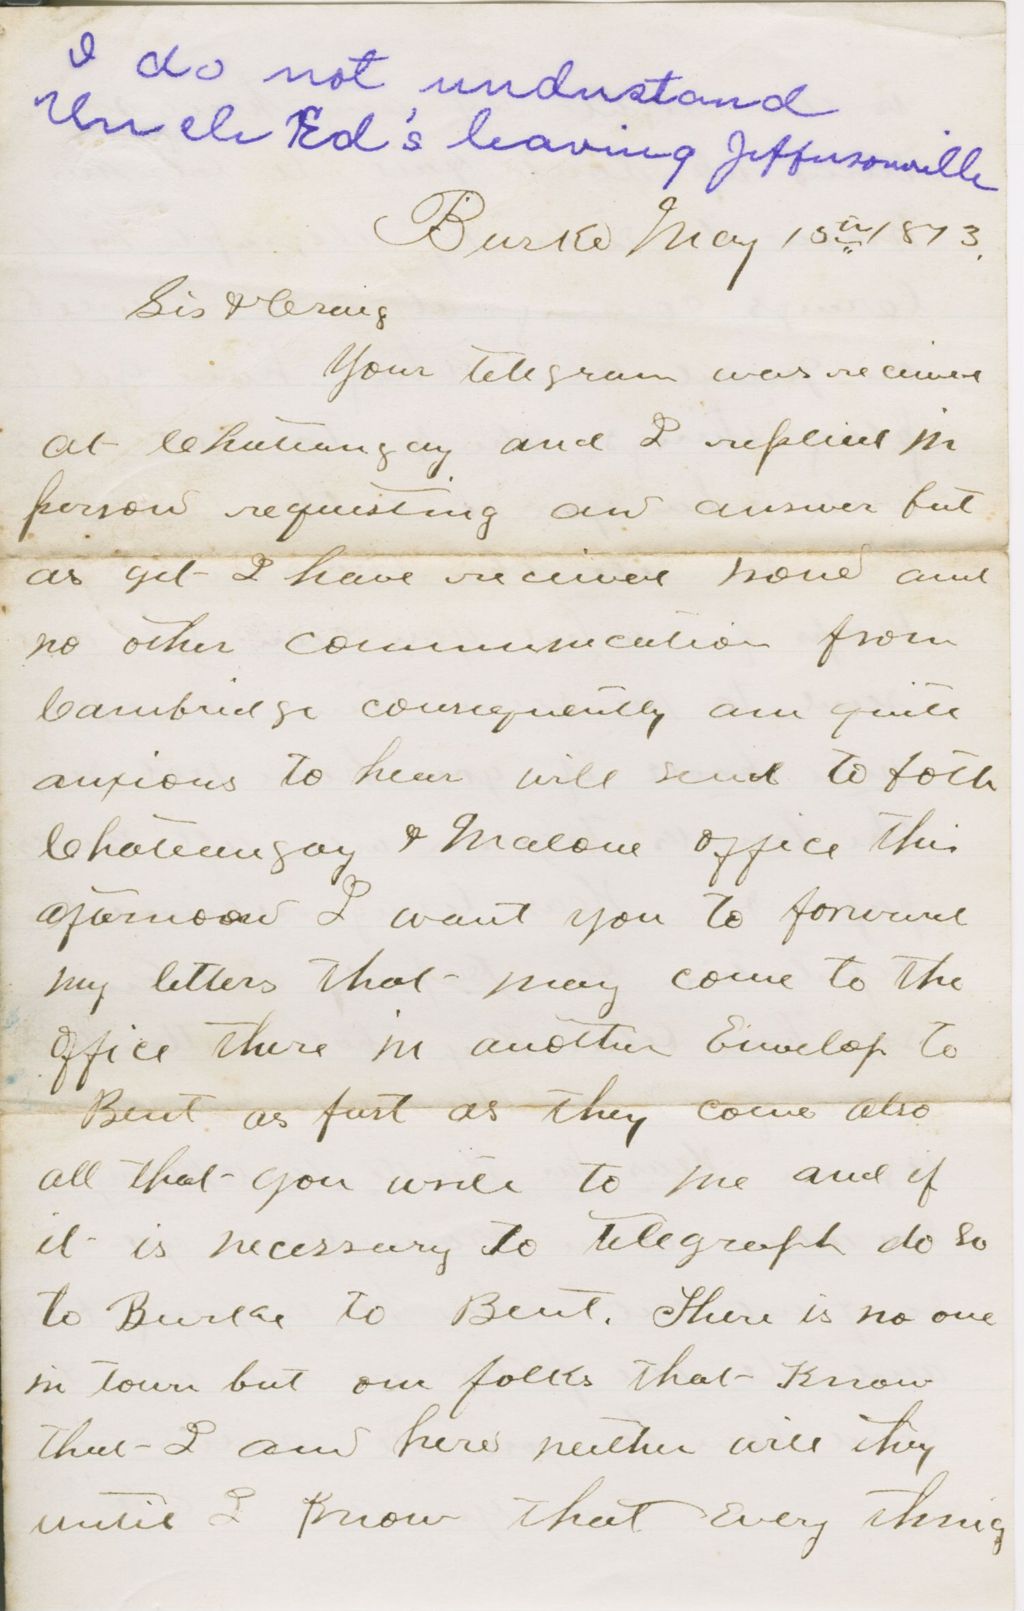 I do not understand
Uncle Ed's leaving Jeffersonville
Burke May 15th 1873.
Sis & Craig
Your telegram was received
at Chateaugay and I replied in
person requesting an answer but
as yet I have received none and
no other communication from
Cambridge consequently am quite
anxious to hear will send to both
Chateaugay & Malone office this
afternoon I want you to forward
my letters that may come to the
office there in another Envelop to
Bent as fast as they come also
all that you write to me and if
it is necessary to telegraph do so
to Burke to Bent. There is no one
in town but our folks that Know
that I am here neither will they
until I Know that Every thing